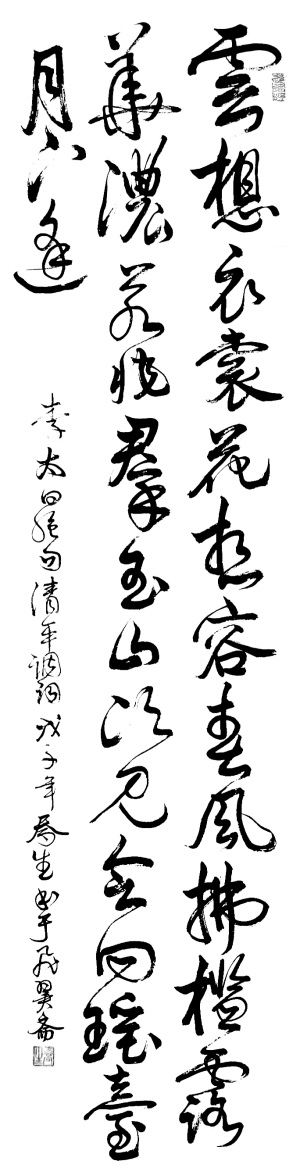 雲想衣裳花想容春風拂檻露
華濃若非羣玉山頭見會向瑤臺
月下逢
李太白絕句清平調詞戊子年生書于飛翼齋